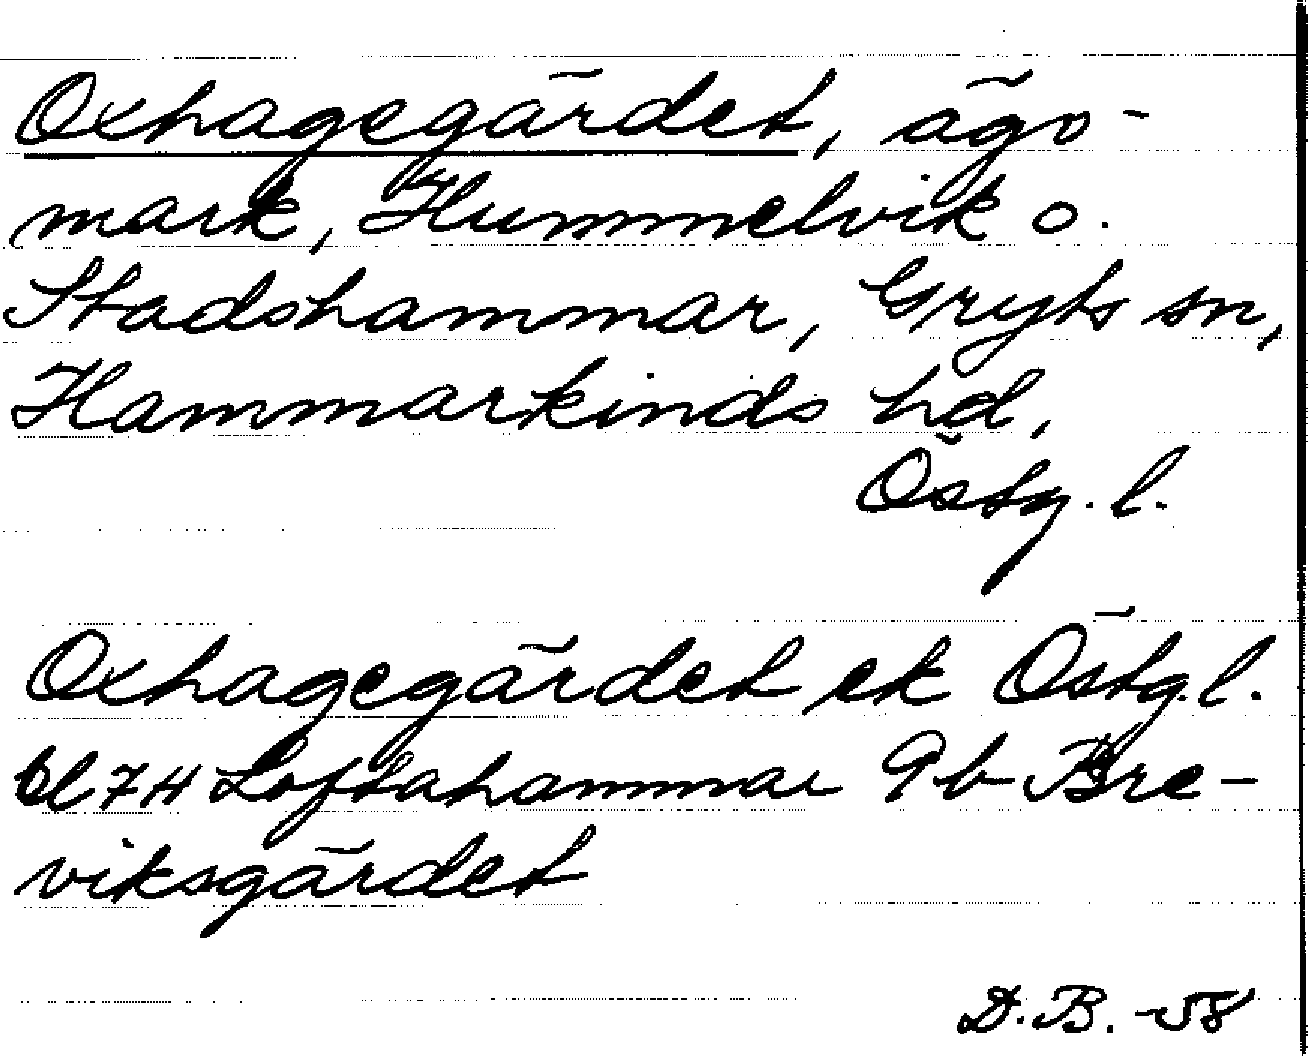 Oxhagegärdet, ägo-
mark, Hummelvik o.
Stadshammar, Gryts sn,
Hammarkinds hd,
Östg. l.
Oxhagegärdet ek Östg. l.
bl 74 Loftahammar 9b Bre-
viksgärdet
D.B. -58